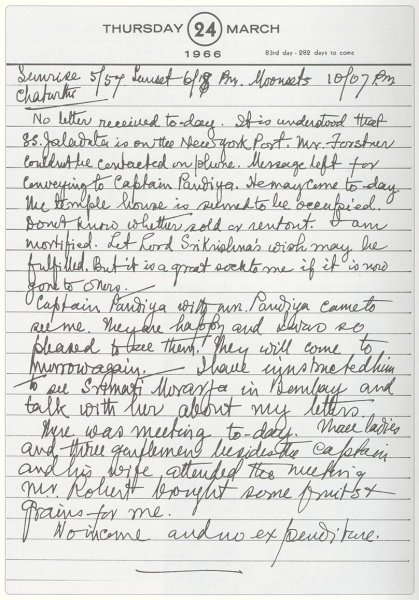 THURSDAY 24 MARCH
1966
83rd day - 282 days to come
Sunrise 5/57 Sunset 6/18 Pm. Moonsets 10/07 Pm
Chaturthi
No letter received to-day. It is understood that
SS. Jaladuta is on the New York Port. Mr. Forstner
couldnt be contacted on phone. Message left for
conveying to Captain Pandiya. He may come to-day.
The temple house is sumed to be occupied.
Dont know whether sold or rent out. I am
mortified. Let Lord Sri Krishna's wish may be
fulfilled. But it is a great sock to me if it is now
gone to others.
Captain Pandiya with mrs. Pandiya came to
see me. They are happy and I was so
pleased to see them. They will come to
morrow again. I have iynstructed him
to see Srimati Morarja in Bombay and
talk with her about my letters.
There was meeting to-day. Three ladies
and three gentlemen besides the Captain
and his wife attended the meeting
Mr. Robert bought some fruits &
grains for me.
No income and no expenditure.